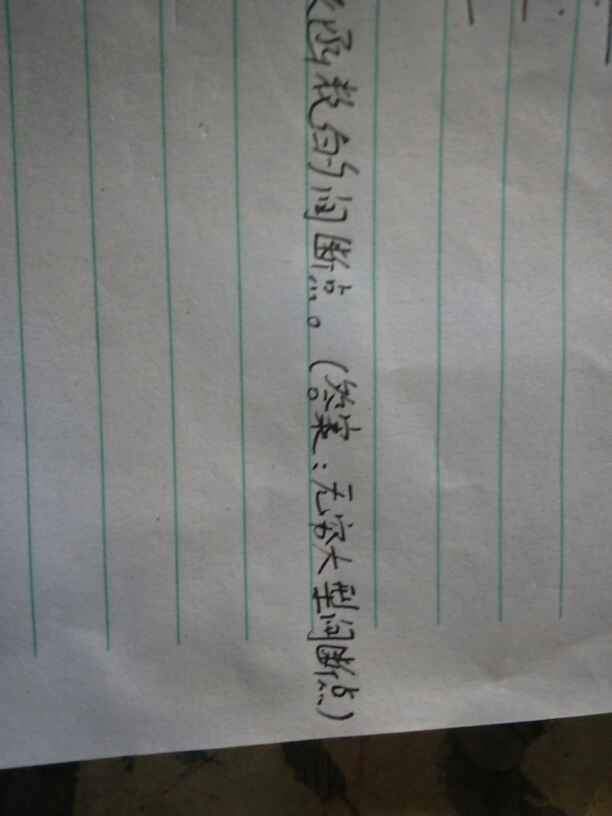 函数的间断点。(答案:无穷大型间断点)